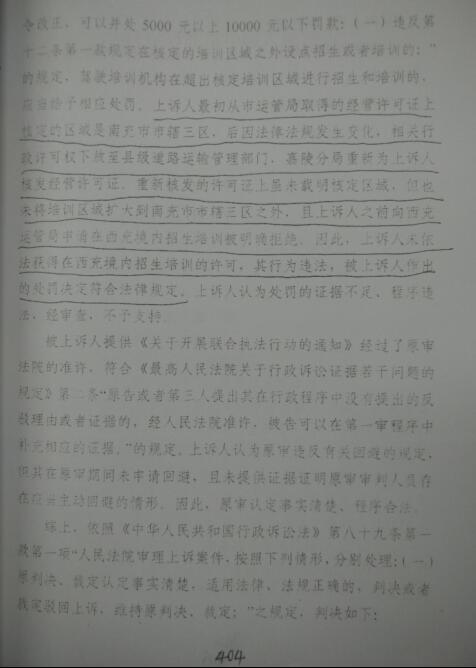 令改正，可以并处 5000 元以上 10000 元以下罚款：（一）违反第
十二条第一款规定在核定的培训区域之外设点招生或者培训的；”
的规定，驾驶培训机构在超出核定培训区域进行招生和培训的，
应当给予相应处罚。上诉人最初从市运管局取得的经营许可证上
核定的区域是南充市市辖三区，后因法律法规发生变化，相关行
政许可权下放至县级道路运输管理部门，嘉陵分局重新为上诉人
核发经营许可证，重新核发的许可证上虽未载明核定区域，但也
未将培训区域扩大到南充市市辖三区之外，且上诉人之前向西充
运管局申请在西充境内招生培训被明确拒绝。因此，上诉人未依
法获得在西充境内招生培训的许可，其行为违法，被上诉人作出
的处罚决定符合法律规定。上诉人认为处罚的证据不足、程序违
法，经审查，不予支持。
被上诉人提供《关于开展联合执法行动的通知》经过了原审
法院的准许，符合《最高人民法院关于行政诉讼证据若干问题的
规定》第二条“原告或者第三人提出其在行政程序中没有提出的反
驳理由或者证据的，经人民法院准许，被告可以在第一审程序中
补充相应的证据。”的规定。上诉人认为原审违反有关回避的规定，
但其在原审期间未申请回避，且未提供证据证明原审审判人员存
在应当主动回避的情形。因此，原审认定事实清楚、程序合法。
综上，依照《中华人民共和国行政诉讼法》第八十九条第一
款第一项“人民法院审理上诉案件，按照下列情形，分别处理：（一）
原判决、裁定认定事实清楚，适用法律、法规正确的，判决或者
裁定驳回上诉，维持原判决、裁定；”之规定，判决如下：
404